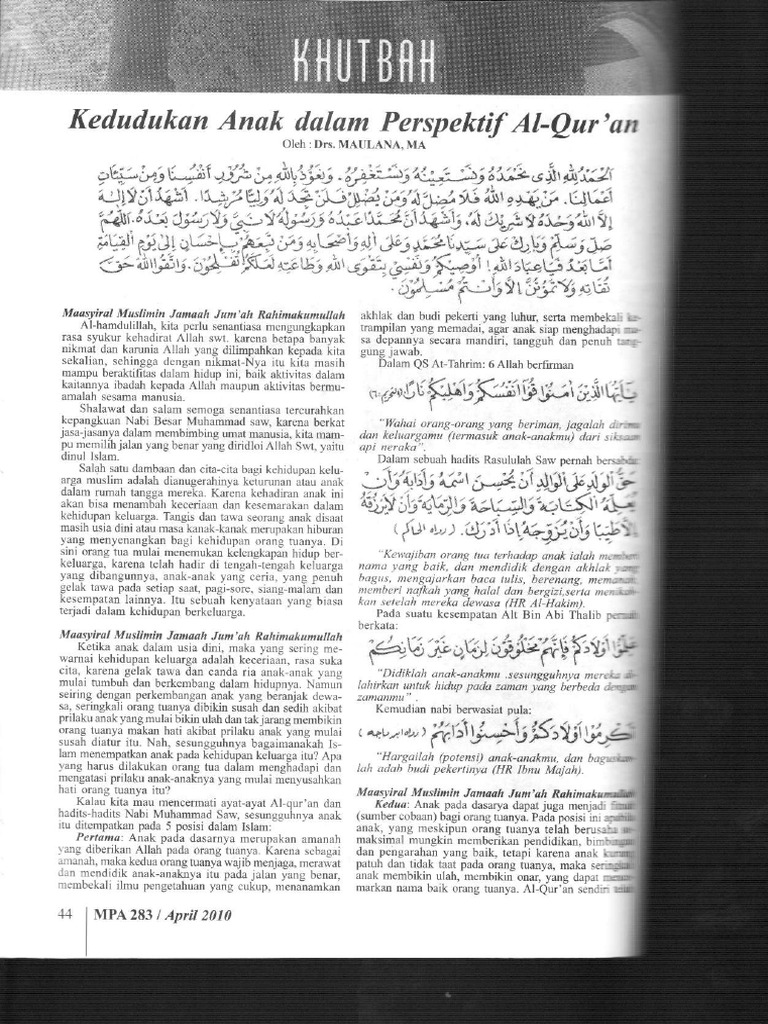 KHUTBAH
Kedudukan Anak dalam Perspektif Al-Qur'an
Oleh : Drs. MAULANA, MA
اَلْحَمْدُ لِلّٰهِ الَّذِى نَحْمَدُهُ وَنَسْتَعِيْنُهُ وَنَسْتَغْفِرُهُ. وَنَعُوْذُ بِاللهِ مِنْ شُرُوْرِ اَنْفُسِنَا وَمِنْ سَيِّئَاتِ
اَعْمَالِنَا. مَنْ يَهْدِهِ اللهُ فَلاَ مُضِلَّ لَهُ وَمَنْ يُضْلِلْ فَلَنْ تَجِدَ لَهُ وَلِيًّا مُرْشِدًا. أَشْهَدُ اَنْ لَا اِلٰهَ
اِلاَّ اللهُ وَحْدَهُ لاَ شَرِيْكَ لَهُ، وَأَشْهَدُ اَنَّ مُحَمَّدًا عَبْدُهُ وَرَسُوْلُهُ لاَ نَبِيَّ وَلاَ رَسُوْلَ بَعْدَهُ. اَللّٰهُمَّ
صَلِّ وَسَلِّمْ وَبَارِكْ عَلَى سَيِّدِنَا مُحَمَّدٍ وَعَلَى اٰلِهِ وَاَصْحَابِهِ وَمَنْ تَبِعَهُمْ بِاِحْسَانٍ اِلَى يَوْمِ الْقِيَامَةِ
اَمَّا بَعْدُ فَيَا عِبَادَ اللهِ! اُوْصِيْكُمْ وَنَفْسِيْ بِتَقْوَى اللهِ وَطَاعَتِهِ لَعَلَّكُمْ تُفْلِحُوْنَ. وَاتَّقُوا اللهَ حَقَّ
تُقَاتِهِ وَلاَ تَمُوْتُنَّ اِلاَّ وَاَنْتُمْ مُسْلِمُوْنَ.
Maasyiral Muslimin Jamaah Jum'ah Rahimakumullah
Al-hamdulillah, kita perlu senantiasa mengungkapkan
rasa syukur kehadirat Allah swt. karena betapa banyak
nikmat dan karunia Allah yang dilimpahkan kepada kita
sekalian, sehingga dengan nikmat-Nya itu kita masih
mampu beraktifitas dalam hidup ini, baik aktivitas dalam
kaitannya ibadah kepada Allah maupun aktivitas bermu-
amalah sesama manusia.
Shalawat dan salam semoga senantiasa tercurahkan
kepangkuan Nabi Besar Muhammad saw, karena berkat
jasa-jasanya dalam membimbing umat manusia, kita mam-
pu memilih jalan yang benar yang diridloi Allah Swt, yaitu
dinul Islam.
Salah satu dambaan dan cita-cita bagi kehidupan kelu-
arga muslim adalah dianugerahinya keturunan atau anak
dalam rumah tangga mereka. Karena kehadiran anak ini
akan bisa menambah keceriaan dan kesemarakan dalam
kehidupan keluarga. Tangis dan tawa seorang anak disaat
masih usia dini atau masa kanak-kanak merupakan hiburan
yang menyenangkan bagi kehidupan orang tuanya. Di
sini orang tua mulai menemukan kelengkapan hidup ber-
keluarga, karena telah hadir di tengah-tengah keluarga
yang dibangunnya, anak-anak yang ceria, yang penuh
gelak tawa pada setiap saat, pagi-sore, siang-malam dan
kesempatan lainnya. Itu sebuah kenyataan yang biasa
terjadi dalam kehidupan berkeluarga.
Maasyiral Muslimin Jamaah Jum'ah Rahimakumullah
Ketika anak dalam usia dini, maka yang sering me-
warnai kehidupan keluarga adalah keceriaan, rasa suka
cita, karena gelak tawa dan canda ria anak-anak yang
mulai tumbuh dan berkembang dalam hidupnya. Namun
seiring dengan perkembangan anak yang beranjak dewa-
sa, seringkali orang tuanya dibikin susah dan sedih akibat
prilaku anak yang mulai bikin ulah dan tak jarang membikin
orang tuanya makan hati akibat prilaku anak yang mulai
susah diatur itu. Nah, sesungguhnya bagaimanakah Is-
lam menempatkan anak pada kehidupan keluarga itu? Apa
yang harus dilakukan orang tua dalam menghadapi dan
mengatasi prilaku anak-anaknya yang mulai menyusahkan
hati orang tuanya itu?
Kalau kita mau mencermati ayat-ayat Al-qur'an dan
hadits-hadits Nabi Muhammad Saw, sesungguhnya anak
itu ditempatkan pada 5 posisi dalam Islam:
Pertama: Anak pada dasarnya merupakan amanah
yang diberikan Allah pada orang tuanya. Karena sebagai
amanah, maka kedua orang tuanya wajib menjaga, merawat
dan mendidik anak-anaknya itu pada jalan yang benar,
membekali ilmu pengetahuan yang cukup, menanamkan
akhlak dan budi pekerti yang luhur, serta membekali
trampilan yang memadai, agar anak siap menghadapi
sa depannya secara mandiri, tangguh dan penuh
gung jawab.
Dalam QS At-Tahrim: 6 Allah berfirman
يٰۤاَيُّهَا الَّذِيْنَ اٰمَنُوْا قُوْۤا اَنْفُسَكُمْ وَاَهْلِيْكُمْ نَارًا (التحريم:٦)
"Wahai orang-orang yang beriman, jagalah
dan keluargamu (termasuk anak-anakmu) dari
api neraka".
Dalam sebuah hadits Rasululah Saw pernah
حَقُّ الْوَلَدِ عَلَى الْوَالِدِ اَنْ يُحْسِنَ اسْمَهُ وَاَدَابَهُ وَاَنْ
يُعَلِّمَهُ الْكِتَابَةَ وَالسِّبَاحَةَ وَالرِّمَايَةَ وَاَنْ لاَ يَرْزُقَهُ
اِلاَّ طَيِّبًا وَاَنْ يُزَوِّجَهُ اِذَا اَدْرَكَ. (رواه الحاكم)
"Kewajiban orang tua terhadap anak ialah
nama yang baik, dan mendidik dengan akhlak
bagus, mengajarkan baca tulis, berenang,
memberi nafkah yang halal dan bergizi,serta
kan setelah mereka dewasa (HR Al-Hakim).
Pada suatu kesempatan Alt Bin Abi Thalib
berkata:
عَلِّمُوْا اَوْلاَدَكُمْ فَاِنَّهُمْ مَخْلُوْقُوْنَ لِزَمَانٍ غَيْرِ زَمَانِكُمْ
"Didiklah anak-anakmu .sesungguhnya mereka
lahirkan untuk hidup pada zaman yang berbeda
zamanmu" .
Kemudian nabi berwasiat pula:
اَكْرِمُوْا اَوْلاَدَكُمْ وَاَحْسِنُوْا اَدَابَهُمْ (رواه ابن ماجه)
"Hargailah (potensi) anak-anakmu, dan
lah adab budi pekertinya (HR Ibnu Majah).
Maasyiral Muslimin Jamaah Jum'ah
Kedua: Anak pada dasarya dapat juga menjadi
(sumber cobaan) bagi orang tuanya. Pada posisi ini
anak, yang meskipun orang tuanya telah berusaha
maksimal mungkin memberikan pendidikan,
dan pengarahan yang baik, tetapi karena anak
patuh dan tidak taat pada orang tuanya, maka
anak membikin ulah, membikin onar, yang dapat
markan nama baik orang tuanya. Al-Qur'an sendiri
44 MPA 283 / April 2010